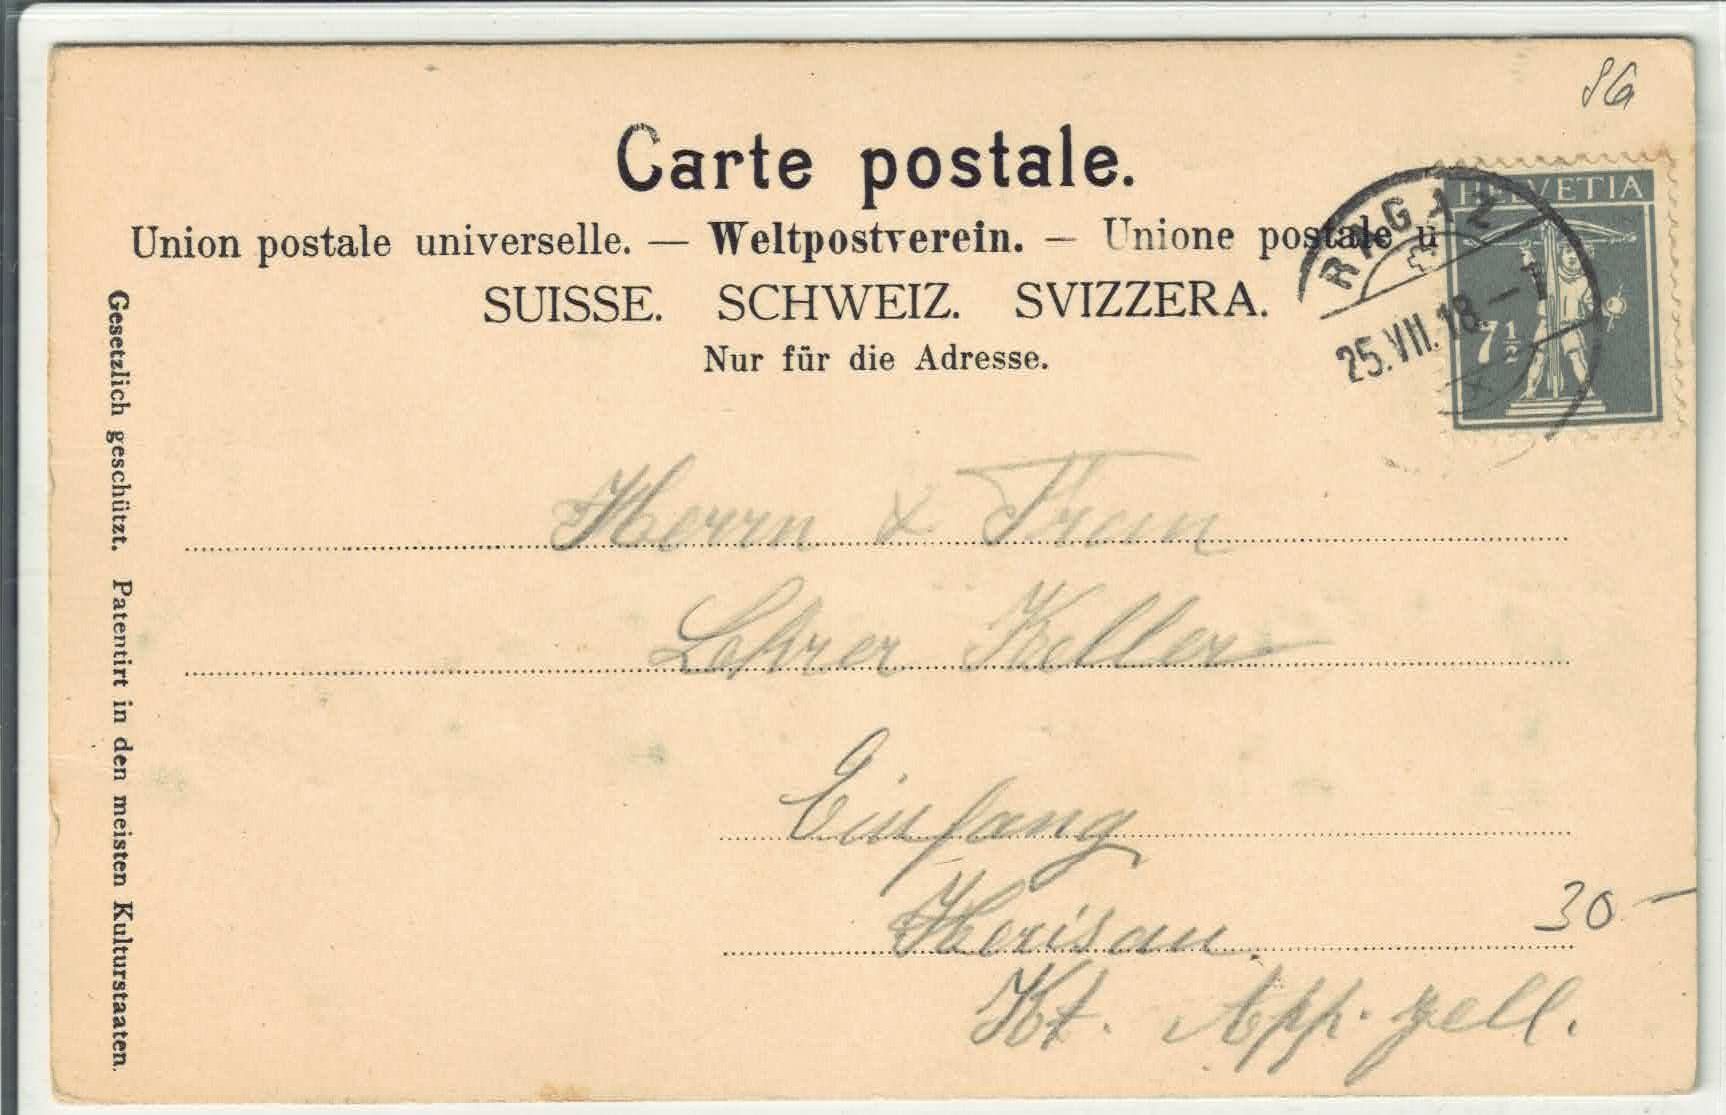 SG
Carte postale.
Union postale universelle. — Weltpostverein. — Unione postale u
SUISSE. SCHWEIZ. SVIZZERA.
Nur für die Adresse.
HELVETIA
7½
RAGAZ
25.VII.18.–7
Gesetzlich geschützt. Patentirt in den meisten Kulturstaaten.
Herrn & Frau
Lehrer Keller
Einfang
Herisau.
Kt. App. zell.
30 –